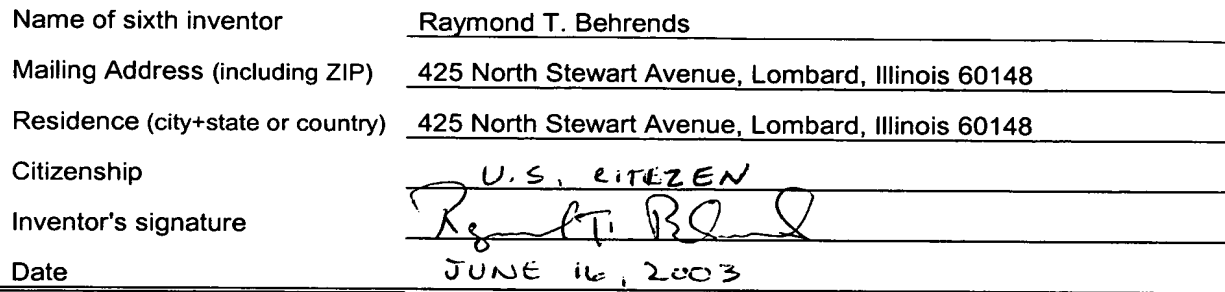 Name of sixth inventor Raymond T. Behrends
Mailing Address (including ZIP) 425 North Stewart Avenue, Lombard, Illinois 60148
Residence (city+state or country) 425 North Stewart Avenue, Lombard, Illinois 60148
Citizenship U.S. CITIZEN
Inventor's signature
Date JUNE 16, 2003